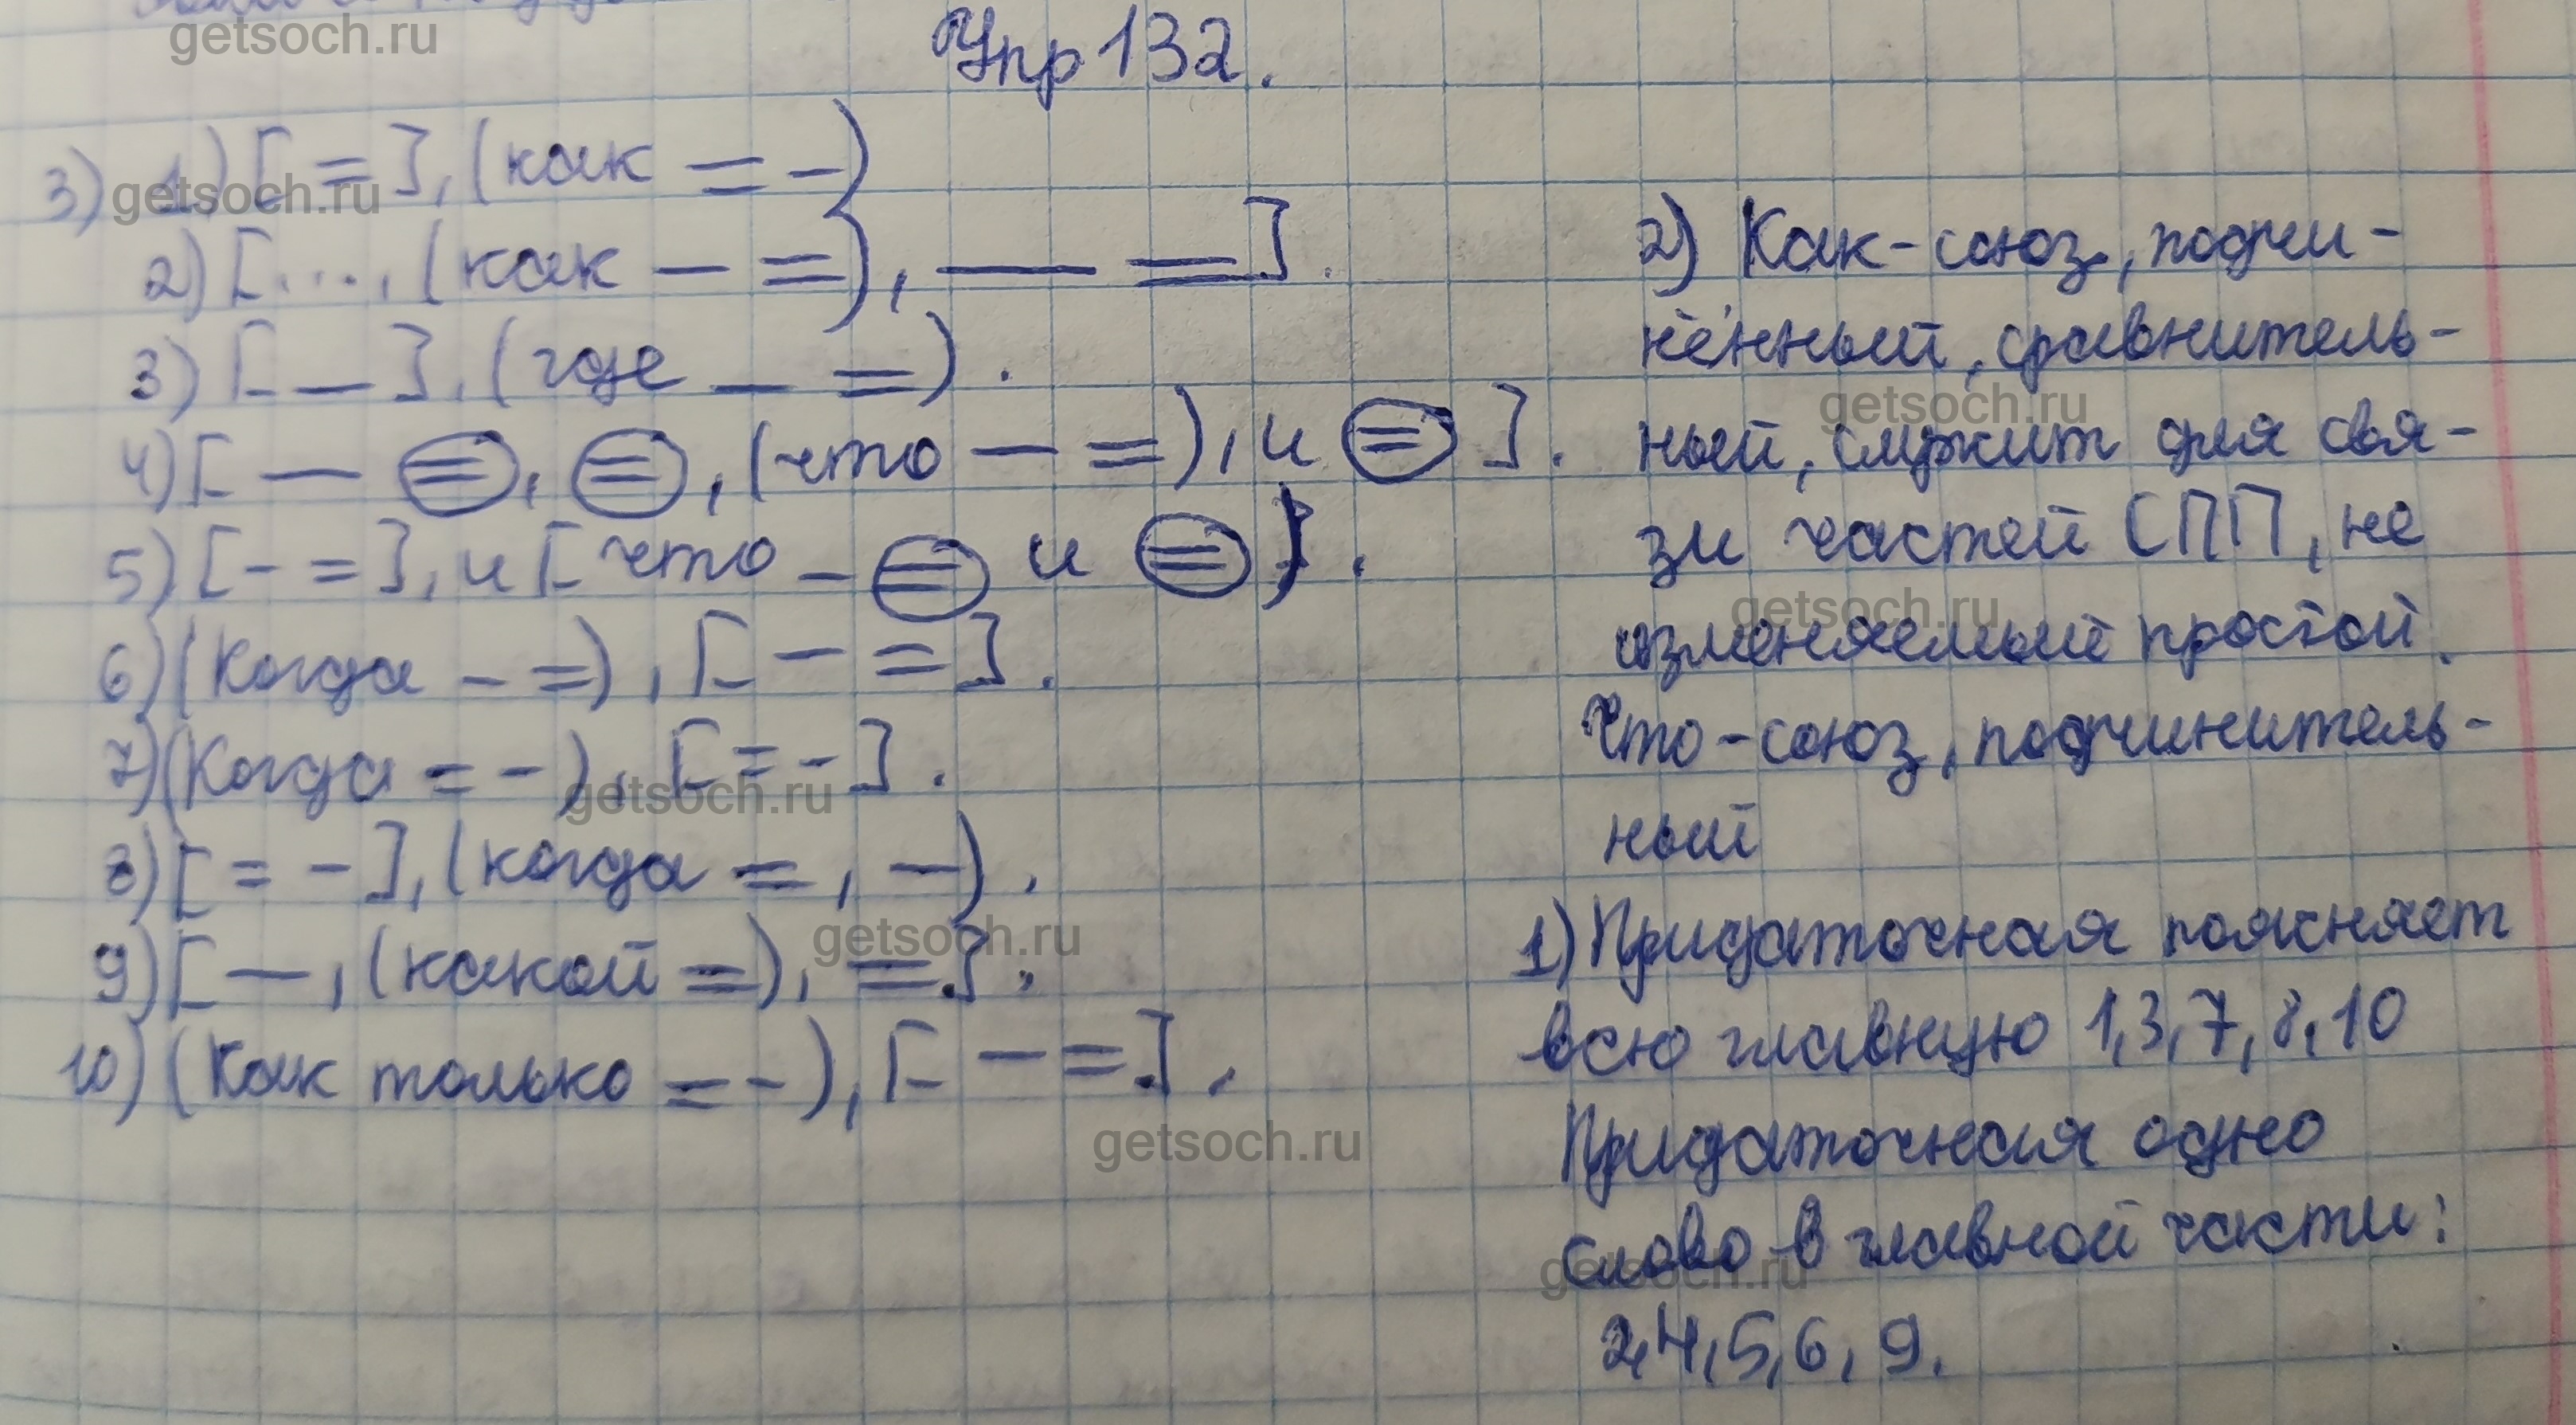 Упр 132.
3) 1) [ = ], (как = –)
2) [ ..., (как – =), — = ].
3) [ — ], (где – =).
4) [ — =, =, (что — =), и = ].
5) [ – = ], и [ что – = и = ).
6) (Когда – =), [ – = ].
7) (Когда = –), [ = – ].
8) [ = – ], (когда =, –).
9) [ —, (какой =), = ].
10) (Как только = –), [ – = ].
2) Как - союз, подчи-
нённый, сравнитель-
ный, служит для свя-
зи частей СПП, не
изменяемый простой.
Что - союз, подчинитель-
ный
1) Придаточная поясняет
всю главную 1,3,7,8,10
Придаточная одно
слово в главной части:
2,4,5,6,9.
getsoch.ru
getsoch.ru
getsoch.ru
getsoch.ru
getsoch.ru
getsoch.ru
getsoch.ru
getsoch.ru